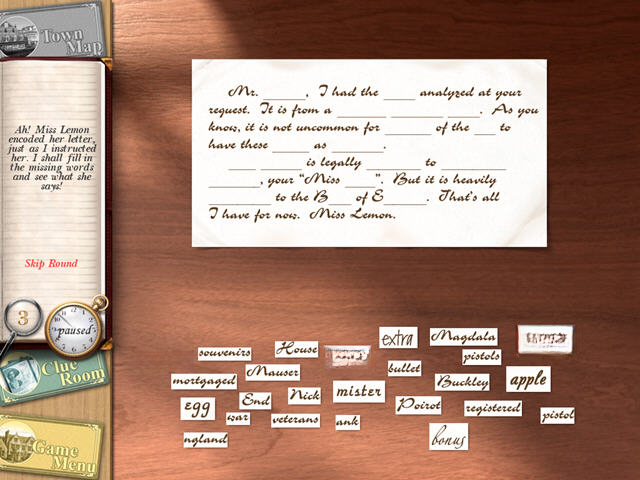 Town
Map
Ah! Miss Lemon
encoded her letter,
just as I instructed
her. I shall fill in
the missing words
and see what she
says!
Skip Round
3
paused
Clue
Room
Game
Menu
Mr. ______, I had the ____ analyzed at your
request. It is from a ______ ______ ____. As you
know, it is not uncommon for ______ of the ___ to
have these _____ as _______.
____ _____ is legally _____ to ________
_______, your "Miss ____". But it is heavily
________ to the B___ of E_____. That's all
I have for now. Miss Lemon.
extra
Magdala
House
souvenirs
pistols
bullet
Mauser
mortgaged
Buckley
apple
mister
Nick
End
egg
Poirot
registered
war
veterans
ank
pistol
ngland
bonus